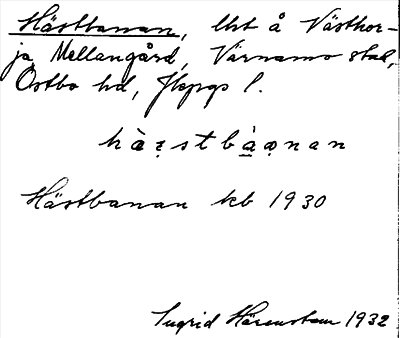 Hästbanan, lht å Västhor-
ja Mellangård, Värnamo stad,
Östbo hd, Jkpgs l.
hä̀ṣstbà̱ǫnan
Hästbanan kb 1930
Ingrid Härenstam 1932